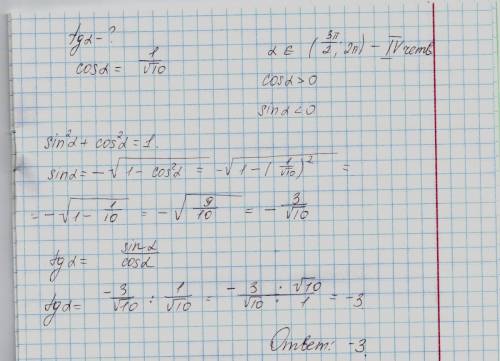 tgα - ?
cosα = 1/√10
α ∈ (3π/2; 2π) - IV четв
cosα > 0
sinα < 0
sin²α + cos²α = 1.
sinα = -√(1 - cos²α) = -√(1 - (1/√10)²) =
= -√(1 - 1/10) = -√(9/10) = -3/√10
tgα = sinα/cosα
tgα = -3/√10 : 1/√10 = -3/√10 · √10/1 = -3.
Ответ: -3.